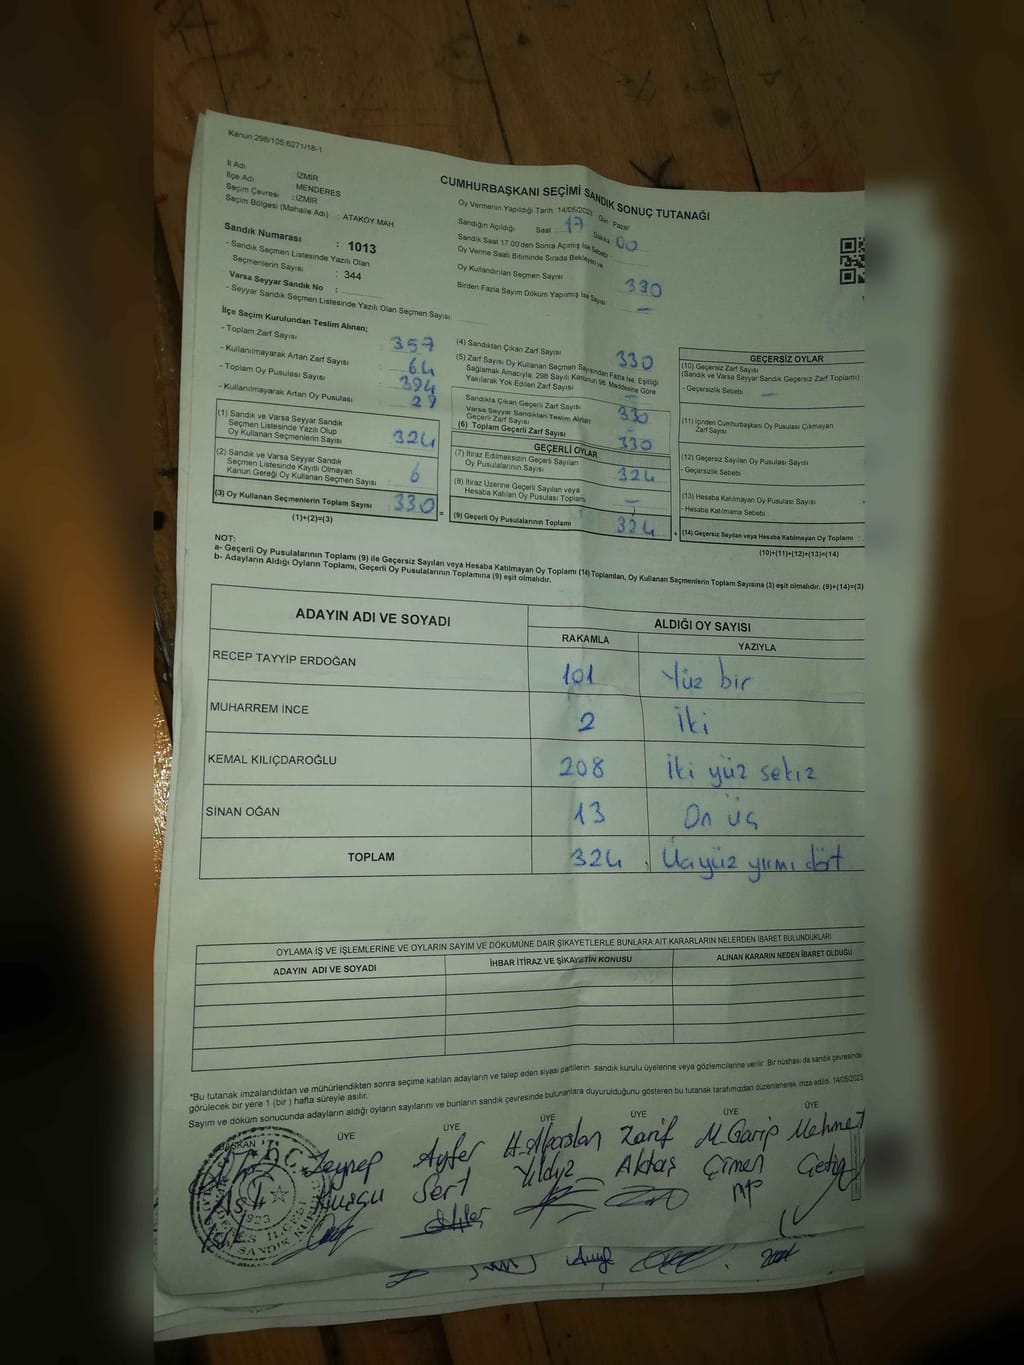 Kanun:298/105;6271/18-1
İl Adı : İZMİR
İlçe Adı : MENDERES
Seçim Çevresi : İZMİR
Seçim Bölgesi (Mahalle Adı) : ATAKÖY MAH
Sandık Numarası : 1013
- Sandık Seçmen Listesinde Yazılı Olan
Seçmenlerin Sayısı : 344
Varsa Seyyar Sandık No :
- Seyyar Sandık Seçmen Listesinde Yazılı Olan Seçmen Sayısı:
CUMHURBAŞKANI SEÇİMİ SANDIK SONUÇ TUTANAĞI
Oy Vermenin Yapıldığı Tarih 14/05/2023 Gün : Pazar
Sandığın Açıldığı Saat 17 Dakika 00
Sandık Saat 17:00'den Sonra Açımış İse Sebebi
Oy Verme Saati Bitiminde Sırada Bekleyen ve
Oy Kullandırılan Seçmen Sayısı 330
Birden Fazla Sayım Döküm Yapılmış İse Sayısı —
İlçe Seçim Kurulundan Teslim Alınan;
- Toplam Zarf Sayısı : 357
- Kullanılmayarak Artan Zarf Sayısı : 64
- Toplam Oy Pusulası Sayısı : 394
- Kullanılmayarak Artan Oy Pusulası : 29
(1) Sandık ve Varsa Seyyar Sandık
Seçmen Listesinde Yazılı Olup
Oy Kullanan Seçmenlerin Sayısı : 324
(2) Sandık ve Varsa Seyyar Sandık
Seçmen Listesinde Kayıtlı Olmayan
Kanun Gereği Oy Kullanan Seçmen Sayısı : 6
(3) Oy Kullanan Seçmenlerin Toplam Sayısı : 330
(1)+(2)=(3)
(4) Sandıktan Çıkan Zarf Sayısı 330
(5) Zarf Sayısı Oy Kullanan Seçmen Sayısından Fazla İse, Eşitliği
Sağlamak Amacıyla, 298 Sayılı Kanunun 98. Maddesine Göre
Yakılarak Yok Edilen Zarf Sayısı —
Sandıkta Çıkan Geçerli Zarf Sayısı 330
Varsa Seyyar Sandıktan Teslim Alınan
Geçerli Zarf Sayısı —
(6) Toplam Geçerli Zarf Sayısı 330
GEÇERLİ OYLAR
(7) İtiraz Edilmeksizin Geçerli Sayılan
Oy Pusulalarının Sayısı 324
(8) İtiraz Üzerine Geçerli Sayılan veya
Hesaba Katılan Oy Pusulası Toplamı —
(9) Geçerli Oy Pusulalarının Toplamı 324
GEÇERSİZ OYLAR
(10) Geçersiz Zarf Sayısı
(Sandık ve Varsa Seyyar Sandık Geçersiz Zarf Toplamı) :
- Geçersizlik Sebebi : —
(11) İçinden Cumhurbaşkanı Oy Pusulası Çıkmayan
Zarf Sayısı
(12) Geçersiz Sayılan Oy Pusulası Sayısı
- Geçersizlik Sebebi :
(13) Hesaba Katılmayan Oy Pusulası Sayısı
- Hesaba Katılmama Sebebi :
(14) Geçersiz Sayılan veya Hesaba Katılmayan Oy Toplamı :
(10)+(11)+(12)+(13)=(14)
NOT:
a- Geçerli Oy Pusulalarının Toplamı (9) ile Geçersiz Sayılan veya Hesaba Katılmayan Oy Toplamı (14) Toplamları, Oy Kullanan Seçmenlerin Toplam Sayısına (3) eşit olmalıdır. (9)+(14)=(3)
b- Adayların Aldığı Oyların Toplamı, Geçerli Oy Pusulalarının Toplamına (9) eşit olmalıdır.
ADAYIN ADI VE SOYADI ALDIĞI OY SAYISI
RAKAMLA YAZIYLA
RECEP TAYYİP ERDOĞAN 101 Yüz bir
MUHARREM İNCE 2 İki
KEMAL KILIÇDAROĞLU 208 İki yüz sekiz
SİNAN OĞAN 13 On üç
TOPLAM 324 Üçyüz yirmi dört
OYLAMA İŞ VE İŞLEMLERİNE VE OYLARIN SAYIM VE DÖKÜMÜNE DAİR ŞİKAYETLERLE BUNLARA AİT KARARLARIN NELERDEN İBARET BULUNDUKLARI
ADAYIN ADI VE SOYADI İHBAR İTİRAZ VE ŞİKAYETİN KONUSU ALINAN KARARIN NEDEN İBARET OLDUĞU
*Bu tutanak imzalandıktan ve mühürlendikten sonra seçime katılan adayların ve talep eden siyasi partilerin sandık kurulu üyelerine veya gözlemcilerine verilir. Bir nüshası da sandık çevresinde
görülecek bir yere 1 (bir) hafta süreyle asılır.
Sayım ve döküm sonucunda adayların aldığı oyların sayılarını ve bunların sandık çevresinde bulunanlara duyurulduğunu gösteren bu tutanak tarafımızdan düzenlenerek imza edildi. 14/05/2023
ÜYE ÜYE ÜYE ÜYE ÜYE ÜYE
Zeynep Ayfer H. Alparslan Zarif M. Garip Mehmet
Kuşçu Sert Yıldız Aktaş Çimen Çetin